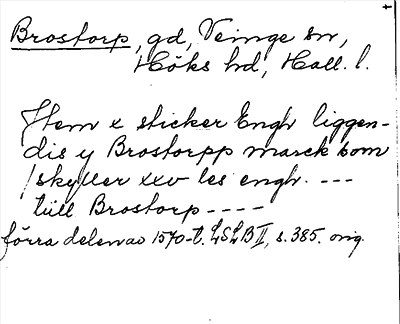 Brostorp, gd, Veinge sn,
Höks hd, Hall. l.
Item x sticker Engh liggen-
dis y Brostorpp marck som
skyller xxv les engh. ---
tüll Brostorp ----
förra delen av 1570-t. LSLB II, s. 385. orig.